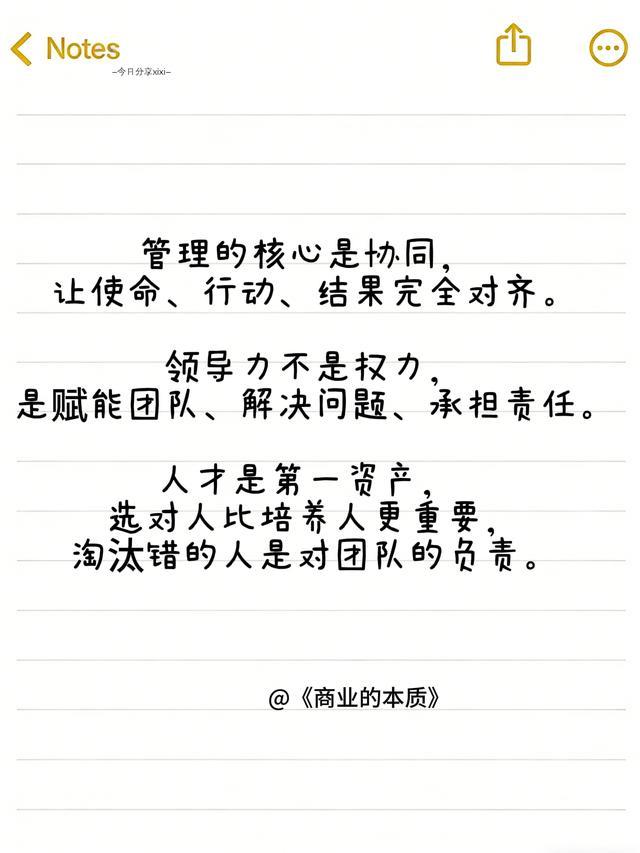 Notes
–今日分享xixi–
管理的核心是协同，
让使命、行动、结果完全对齐。
领导力不是权力，
是赋能团队、解决问题、承担责任。
人才是第一资产，
选对人比培养人更重要，
淘汰错的人是对团队的负责。
@《商业的本质》